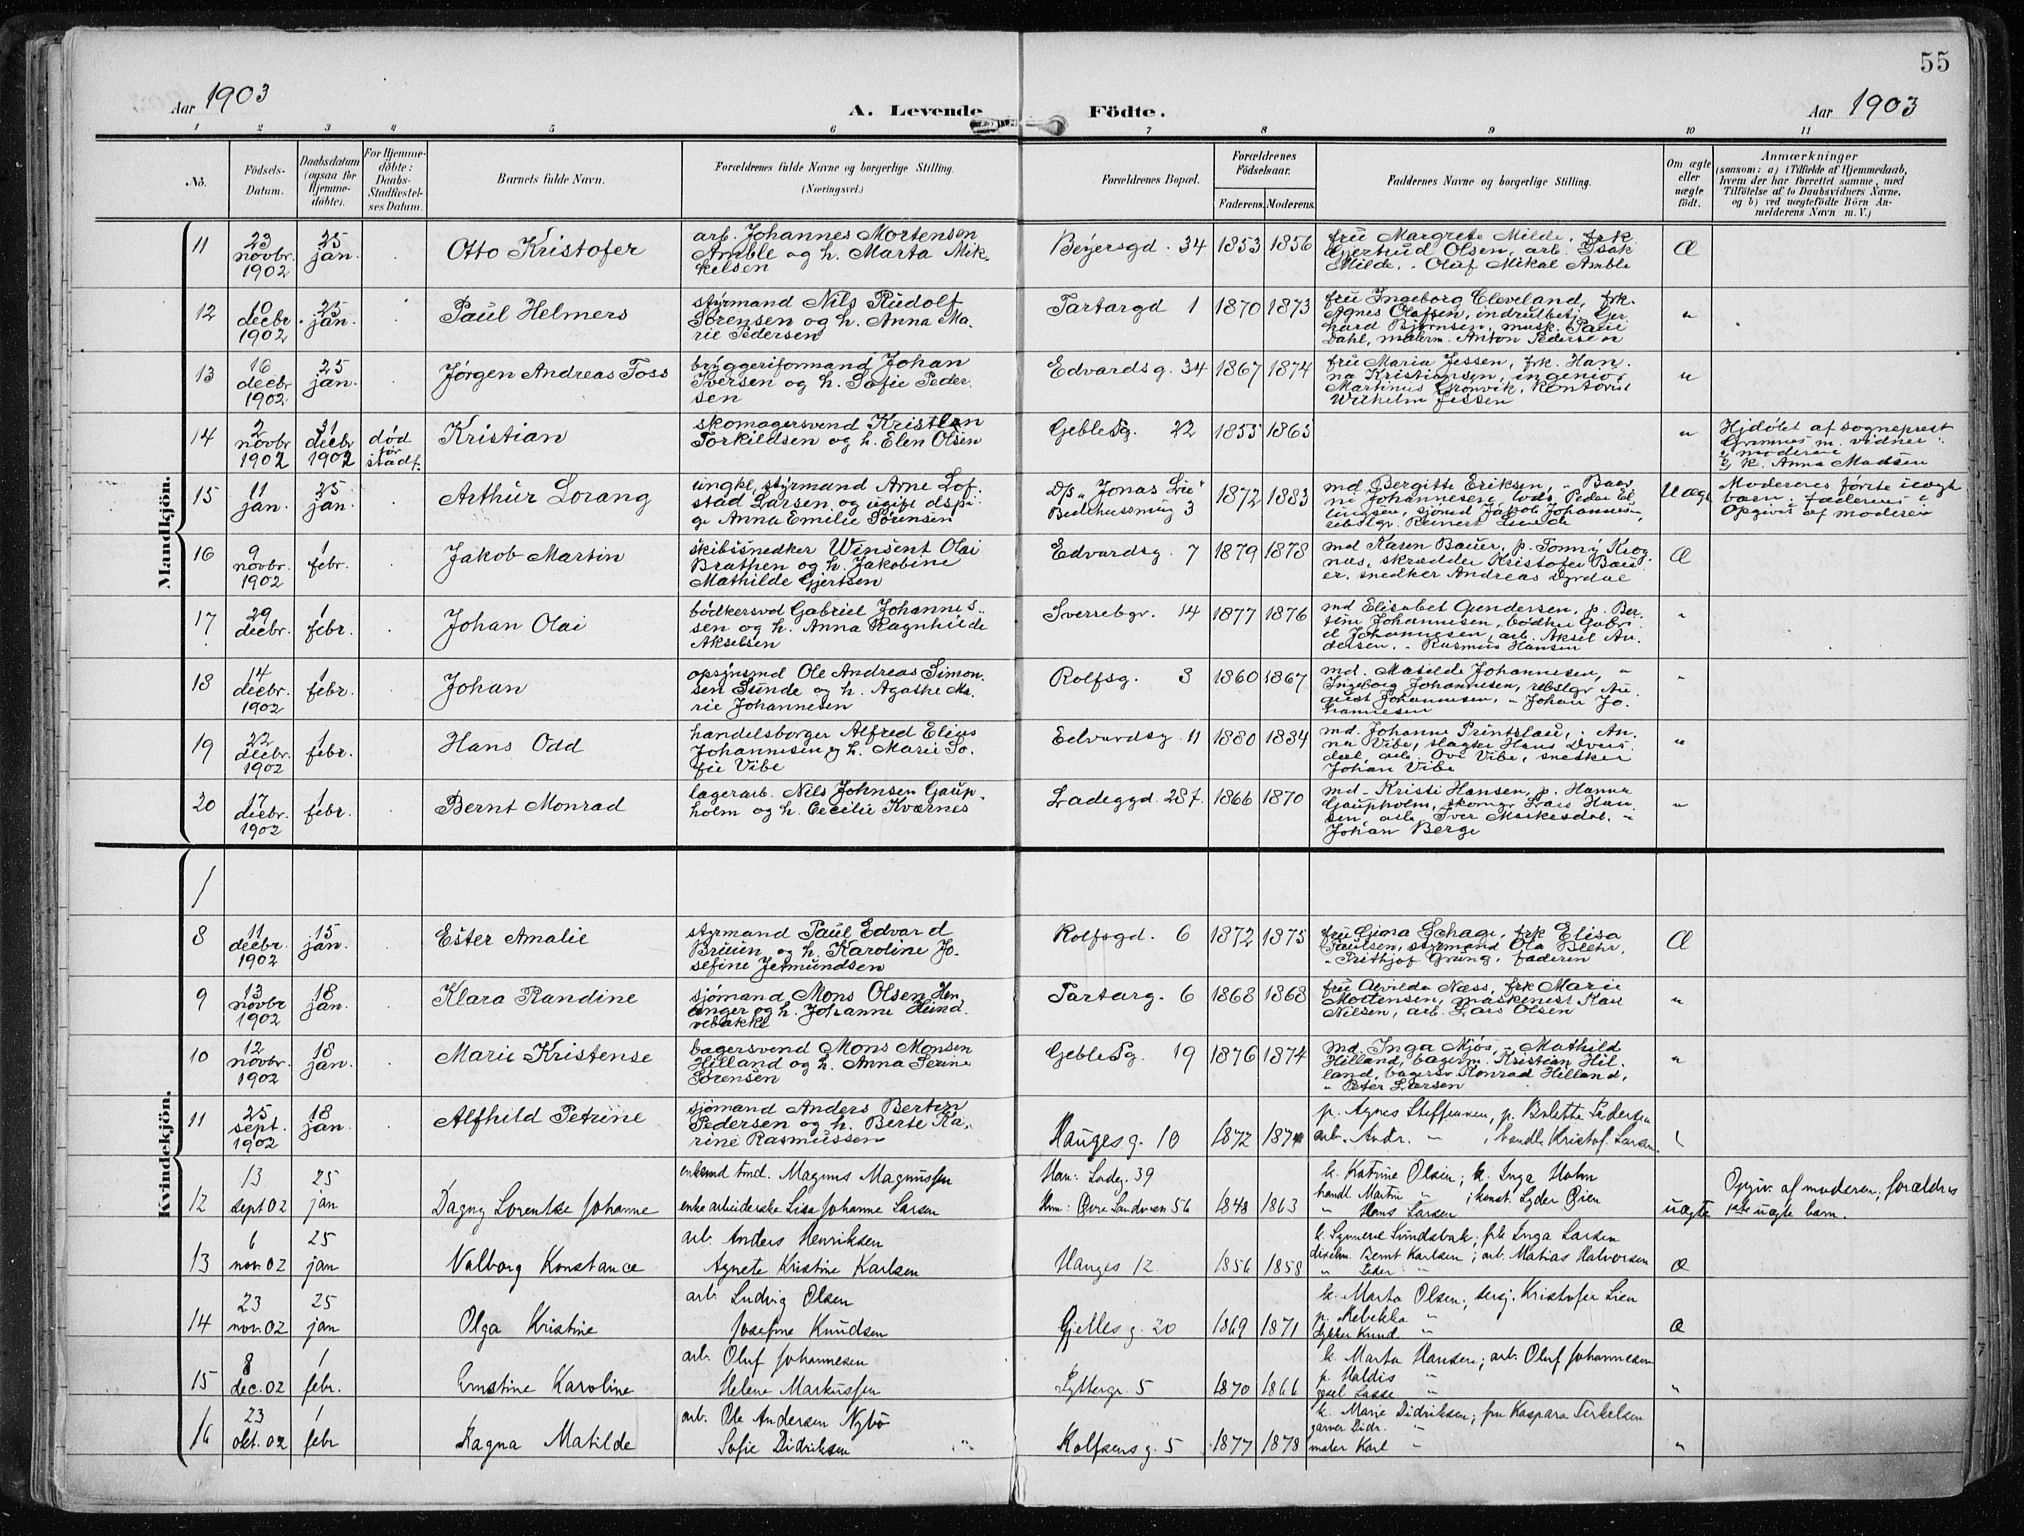 55
Aar 1903
A. Levende Födte.
Aar 1903
1 2 3 4 5 6 7 8 9 10 11
No.
Födsels-Datum.
Daabsdatum (ogsaa for Hjemmedöbte).
For Hjemmedöbte: Daabs-Stadfæstelses Datum.
Barnets fulde Navn.
Forældrenes fulde Navne og borgerlige Stilling.
(Næringsvei.)
Forældrenes Bopæl.
Forældrenes Födselsaar.
Faderens. Moderens.
Faddernes Navne og borgerlige Stilling.
Om ægte eller uægte födt.
Anmærkninger
(saasom: a) i Tilfælde af Hjemmedaab, hvem der har forrettet samme, med Tilföielse af to Daabsvidners Navne, og b) ved uægtefödte Börn Anmelderens Navn m. V.)
Mandkjön.
11 23 novbr. 1902 25 jan. Otto Kristofer arb. Johannes Mortensen Amble og h. Marta Mikkelsen Beyersgd. 34 1853 1856 fru Margrete Milde, frk. Gjertrud Olsen, arb. Isak Milde, " Oluf Mikal Amble Æ
12 10 decbr. 1902 25 jan. Paul Helmers styrmand Nils Rudolf Sørensen og h. Anna Marie Pedersen Tartargd 1 1870 1873 fru Ingeborg Cleveland, frk. Agnes Olafsen, indrulbetj. Gerhard Bjørnsen, musk. Paul Dahl, malerm. Anton Pedersen "
13 16 decbr 1902 25 jan. Jørgen Andreas Foss bryggeriformand Johan Iversen og h. Sofie Pedersen Edvardsg. 34 1867 1874 fru Maria Jessen, frk. Hanna Kristiansen, ingeniør Martinus Grønvik, kontorist Wilhelm Jessen "
14 2 novbr 1902 31 decbr 1902 død før stadf. Kristian skomagersvend Kristian Torkildsen og h. Elen Olsen Geblesg. 22 1855 1865 " Hjdøbt af sogneprest Grimnes m. vidner: moderen k. Anna Madsen
15 11 jan. 25 jan. Arthur Lorang ungk. styrmand Arne Lofstad Larsen og ugift dspige Anna Emilie Sørensen D/s "Jonas Lie" 3 1872 1883 md Bergitte Eriksen, " Johannesen, lods Peder Ellingsen, sjømd Jakob Johannesen, rebslgr. Reinert Uægt Moderens første uægte barn. faderen Opgivet af moderen
16 9 novbr. 1902 1 febr. Jakob Martin skibssnedker Winsent Olai Brathen og h. Jakobine Mathilde Gjertsen Edvardsg. 7 1879 1878 md Kasen Bauer, p. Tommy Krognæs, skrædder Kristofer Bauer, snedker Andreas Æ
17 29 decbr. 1 febr. Johan Olai bødkersvd Gabriel Johannessen og h. Anna Ragnhilde Akselsen Sverrebgr. 14 1877 1876 md Elisabet Gundersen, p. Bertine Johannesen, bødker Gabriel Johannesen, arb. Aksel Andersen, " Rasmus Hansen "
18 14 decbr. 1902 1 febr. Johan opsynsmd Ole Andreas Simonsen Sunde og h. Agathe Marie Johannesen Rolfsg. 3 1860 1867 md. Matilde Johannesen, " Ingeborg Johannesen, rebslgr August Johannesen, " Johan Johannesen "
19 22 decbr. 1902 1 febr. Hans Odd handelsborger Alfred Elius Johannesen og h. Marie Sofie Vibe Edvardsg. 11 1880 1884 md. Johanne Printzlau, " Anna Vibe, slagter Hans, arb. Ove Vibe, snedker Johan Vibe "
20 17 decbr. 1902 1 febr. Bernt Monrad lagerarb. Nils Johnsen Gaupholm og h. Cecilie Kværnes Ladeggd. 287 1866 1870 md. Kristi Hansen, p. Hanna Gaupholm, skomgr Lars Hansen, arb. Iver Markesdal, " Johan Berge "
Kvindekjön.
8 11 decbr. 1902 15 jan. Ester Amalie styrmand Paul Edvard Bruun, og h. Karoline Josefine Jermundsen Rolfsgd. 6 1872 1875 fru Gjona Schage, frk Elisa Paulsen, styrmand Ole Blehr, " Frithjof Grung, faderen Æ
9 13 novbr 1902 18 jan. Klara Randine sjømand Mons Olsen Henanger og h. Johanne Hundvebakke Tartarg. 6 1868 1868 fru Alvilde Næss, frk Marie Mortensen, maskinist Karl Nilsen, arb. Lars Olsen "
10 12 novbr. 1902 18 jan. Marie Kristense bagersvend Mons Monsen Hilland og h. Anna Serine Sørensen Geblesg. 19 1876 1874 md. Inga Njøs, " Mathild Hilland, bagerm. Kristian Hilland, bagersv. Konrad Hilland, " Peter Larsen "
11 25 sept. 1902 18 jan. Alfhild Petrine sjømand Anders Berten Pedersen og h. Berte Karine Rasmussen Haugesg. 10 1872 p. Agnes Steffensen, p. Berlette Pedersen arb. Andr. " , handl. Kristof. Larsen "
12 13 sept 02 25 jan Dagny Lorentse Johanne enkemd tmd. Magnus Magnussen enke arbeiderske Lisa Johanne Larsen Han: Ladeg. 39 Hun: Øvre Sandviken 56 1848 1863 k. Katrine Olsen; k. Inga Holm handl Martin " ; konst. Lyder Øien " Hans Larsen uægte Opgiv. af moderen; forældres 1ste uægte barn.
13 6 nov. 02 25 jan Valborg Konstance arb. Anders Henriksen Agnete Kristine Karlsen Hauges 12 1856 1858 k. Synneve Sundsbak; frk Inga Larsen Bernt Karlsen; arb. Matias Halvorsen " Peder " Æ
14 23 nov. 02 25 jan Olga Kristine arb. Ludvig Olsen Josefine Knudsen Gjelles g. 20 1869 1871 k. Marta Olsen; sersj. Kristofer Lien p. Rebekka " Knud. " Æ
15 8 dec. 02 1 febr. Ernstine Karoline arb. Oluf Johannesen Helene Markussen Lyttergr. 5 1870 1866 k. Marta Hansen; arb. Oluf Johannesen p. Haldis " Lasse " "
16 23 okt. 02 1 febr Ragna Matilde arb. Ole Andersen Nybø Sofie Didriksen Rolfsens g. 5 1877 1878 k. Marie Didriksen; fru Kaspara Terkelsen garver Didr. " maler Karl " "